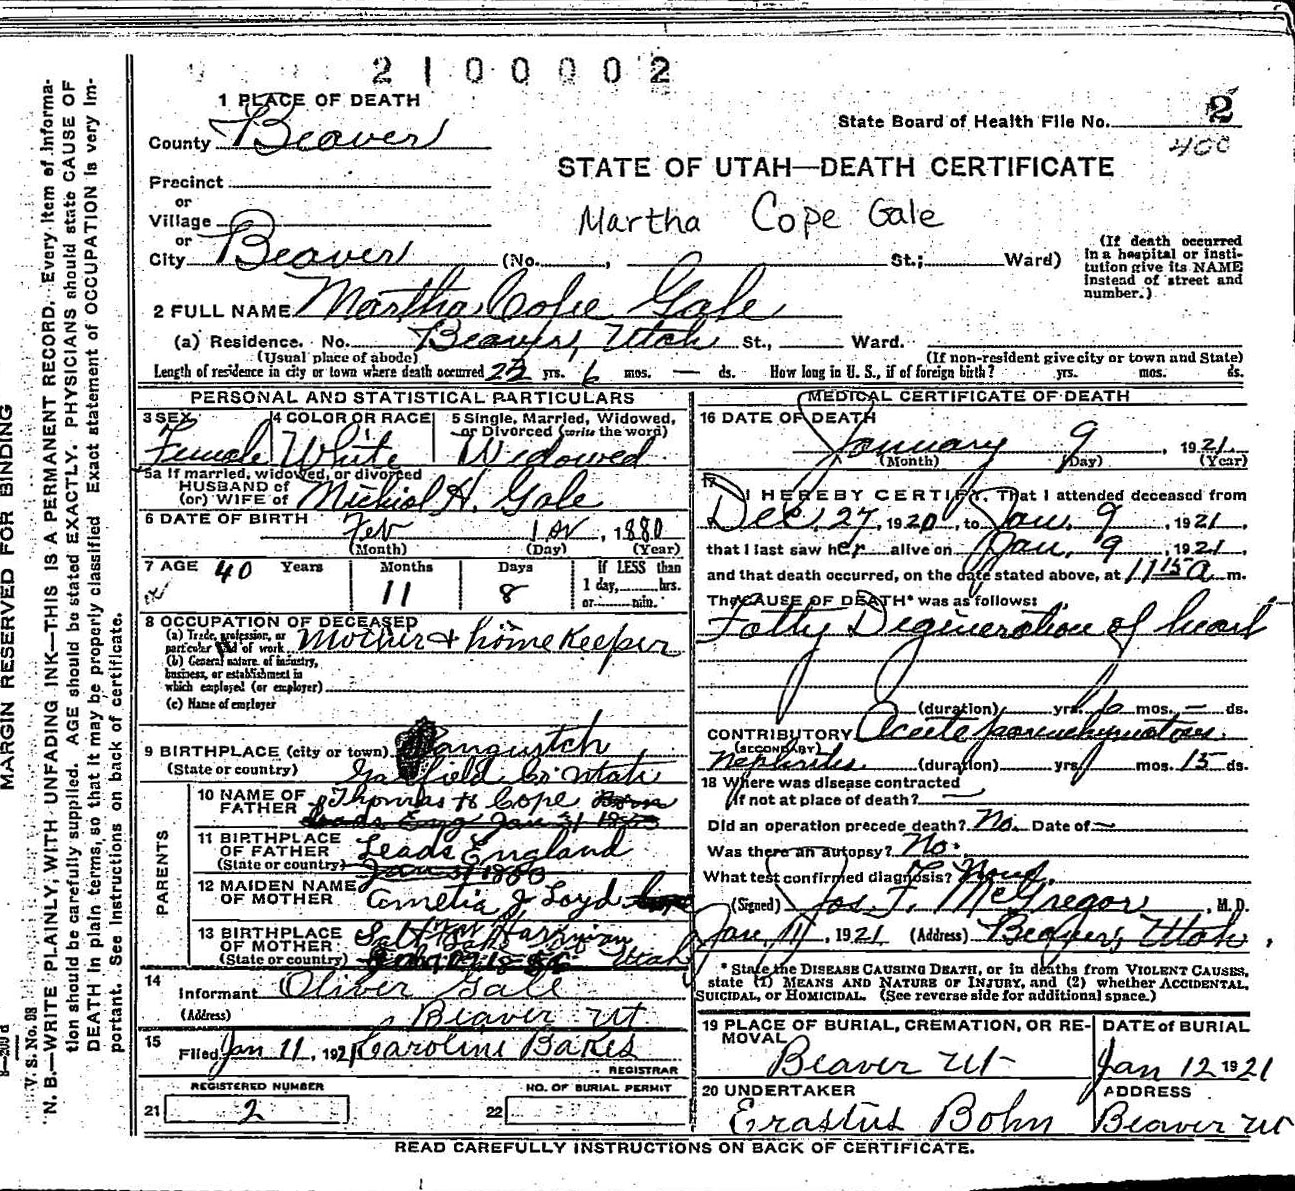 2100002
1 PLACE OF DEATH
County Beaver
State Board of Health File No. 2
400
STATE OF UTAH—DEATH CERTIFICATE
Precinct
or
Village
Martha Cope Gale
or
City Beaver (No. , St.; Ward)
(If death occurred in a hospital or institution give its NAME instead of street and number.)
2 FULL NAME Martha Cope Gale
(a) Residence. No. Beaver, Utah St., Ward.
(Usual place of abode) (If non-resident give city or town and State)
Length of residence in city or town where death occurred 22 yrs. 6 mos. — ds. How long in U. S., if of foreign birth? yrs. mos. ds.
PERSONAL AND STATISTICAL PARTICULARS
3 SEX Female
4 COLOR OR RACE White
5 Single, Married, Widowed, or Divorced (write the word) Widowed
5a If married, widowed, or divorced
HUSBAND of
(or) WIFE of H. Gale
6 DATE OF BIRTH Feb 1, 1880
(Month) (Day) (Year)
7 AGE 40 Years 11 Months 8 Days
If LESS than
1 day, hrs.
or min.
8 OCCUPATION OF DECEASED
(a) Trade, profession, or particular kind of work Mother & home Keeper
(b) General nature of industry, business, or establishment in which employed (or employer)
(c) Name of employer
9 BIRTHPLACE (city or town) Panguitch
(State or country) Garfield Co Utah
PARENTS
10 NAME OF FATHER Thomas H Cope
11 BIRTHPLACE OF FATHER Leads England
(State or country)
12 MAIDEN NAME OF MOTHER J Loyd
13 BIRTHPLACE OF MOTHER
(State or country) Utah
14 Informant Oliver Gale
(Address) Beaver Ut
15 Filed Jan 11, 1921 Caroline Bakes
REGISTRAR
REGISTERED NUMBER
NO. OF BURIAL PERMIT
21 2
22
MEDICAL CERTIFICATE OF DEATH
16 DATE OF DEATH
January 9, 1921.
(Month) (Day) (Year)
17
I HEREBY CERTIFY, That I attended deceased from
Dec. 27, 1920, to Jan. 9, 1921,
that I last saw her alive on Jan. 9, 1921
and that death occurred, on the date stated above, at 11 15 a m.
The CAUSE OF DEATH* was as follows:
Fatty Degeneration of heart
(duration) yrs. 6 mos. — ds.
CONTRIBUTORY Acute parenchymatous
(SECONDARY)
Nephritis. (duration) yrs. mos. 15 ds.
18 Where was disease contracted
if not at place of death? —
Did an operation precede death? No. Date of —
Was there an autopsy? No.
What test confirmed diagnosis? None.
(Signed) Jos. F. McGregor, M.D.
Jan. 11, 1921 (Address) Beaver, Utah.
* State the DISEASE CAUSING DEATH, or in deaths from VIOLENT CAUSES,
state (1) MEANS AND NATURE OF INJURY, and (2) whether ACCIDENTAL,
SUICIDAL, or HOMICIDAL. (See reverse side for additional space.)
19 PLACE OF BURIAL, CREMATION, OR REMOVAL
Beaver Ut
DATE of BURIAL
Jan 12 1921
20 UNDERTAKER
Erastus Bohn
ADDRESS
Beaver Ut
READ CAREFULLY INSTRUCTIONS ON BACK OF CERTIFICATE.
MARGIN RESERVED FOR BINDING
V. S. No. 98
N. B.—WRITE PLAINLY, WITH UNFADING INK—THIS IS A PERMANENT RECORD. Every item of informa-
tion should be carefully supplied. AGE should be stated EXACTLY. PHYSICIANS should state CAUSE OF
DEATH in plain terms, so that it may be properly classified. Exact statement of OCCUPATION is very im-
portant. See instructions on back of certificate.